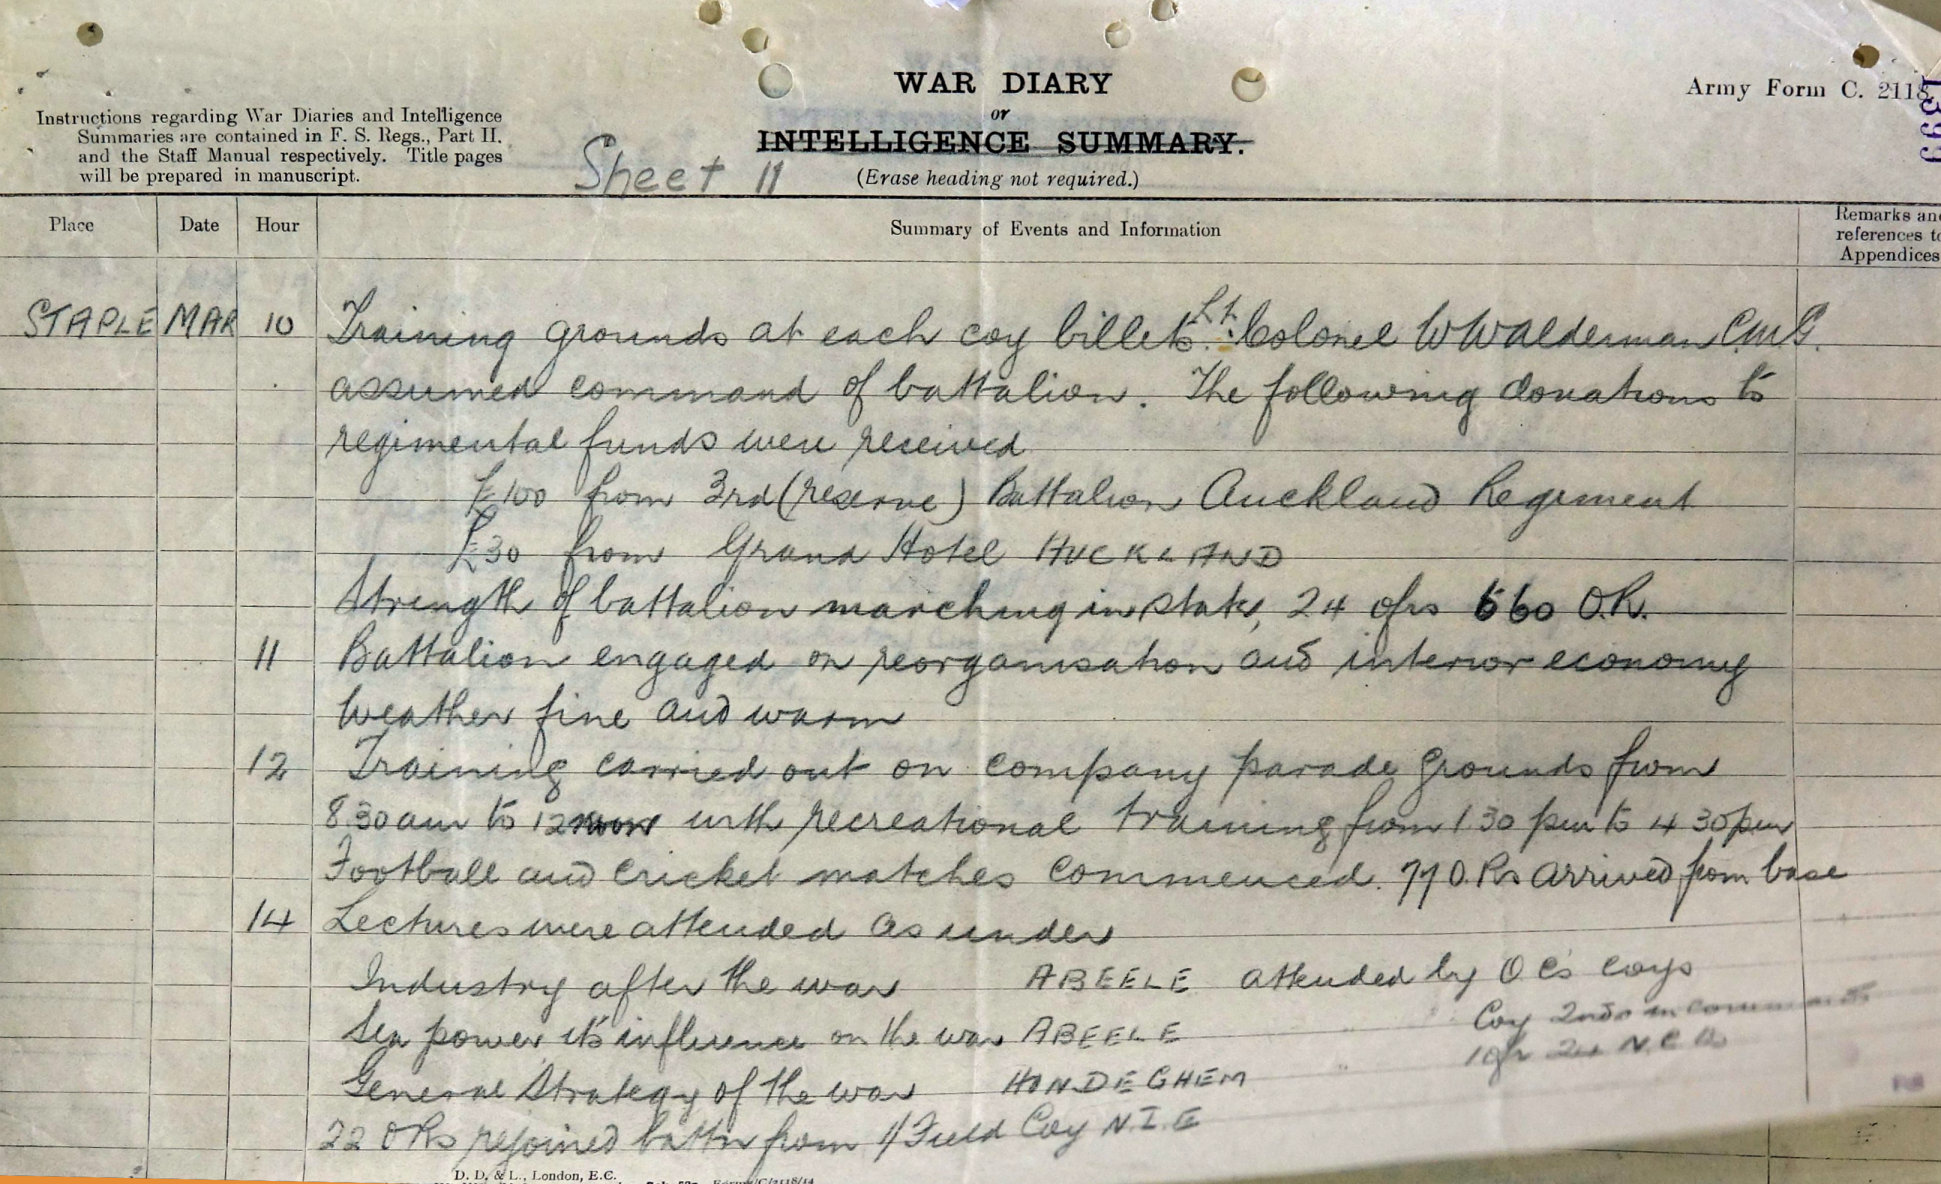 WAR DIARY
or
INTELLIGENCE SUMMARY.
(Erase heading not required.)
Army Form C. 2118
1399
Instructions regarding War Diaries and Intelligence
Summaries are contained in F. S. Regs., Part II.
and the Staff Manual respectively. Title pages
will be prepared in manuscript.
Sheet 11
Place Date Hour Summary of Events and Information
Remarks and
references to
Appendices
STAPLE MAR 10 Training grounds at each coy billets. Lt. Colonel W W Alderman C.M.G.
assumed command of battalion. The following donations to
regimental funds were received
£100 from 3rd (reserve) Battalion Auckland Regiment
£30 from Grand Hotel AUCKLAND
Strength of battalion marching in state, 24 ofrs 660 O.R.
11 Battalion engaged on reorganisation and interior economy
Weather fine and warm
12 Training carried out on company parade grounds from
8.30 am to 12 noon with recreational training from 1 30 pm to 4 30 pm
Football and cricket matches commenced. 77 O.Rs arrived from base
14 Lectures were attended as under
Industry after the war ABEELE attended by O C's coys
Sea power it's influence on the war ABEELE " " Coy 2nds in
General Strategy of the war HONDEGHEM " N.C.Os
22 O Rs rejoined battn from Field Coy N.Z.E
D. D. & L., London, E.C.
Forms/C/2118/14